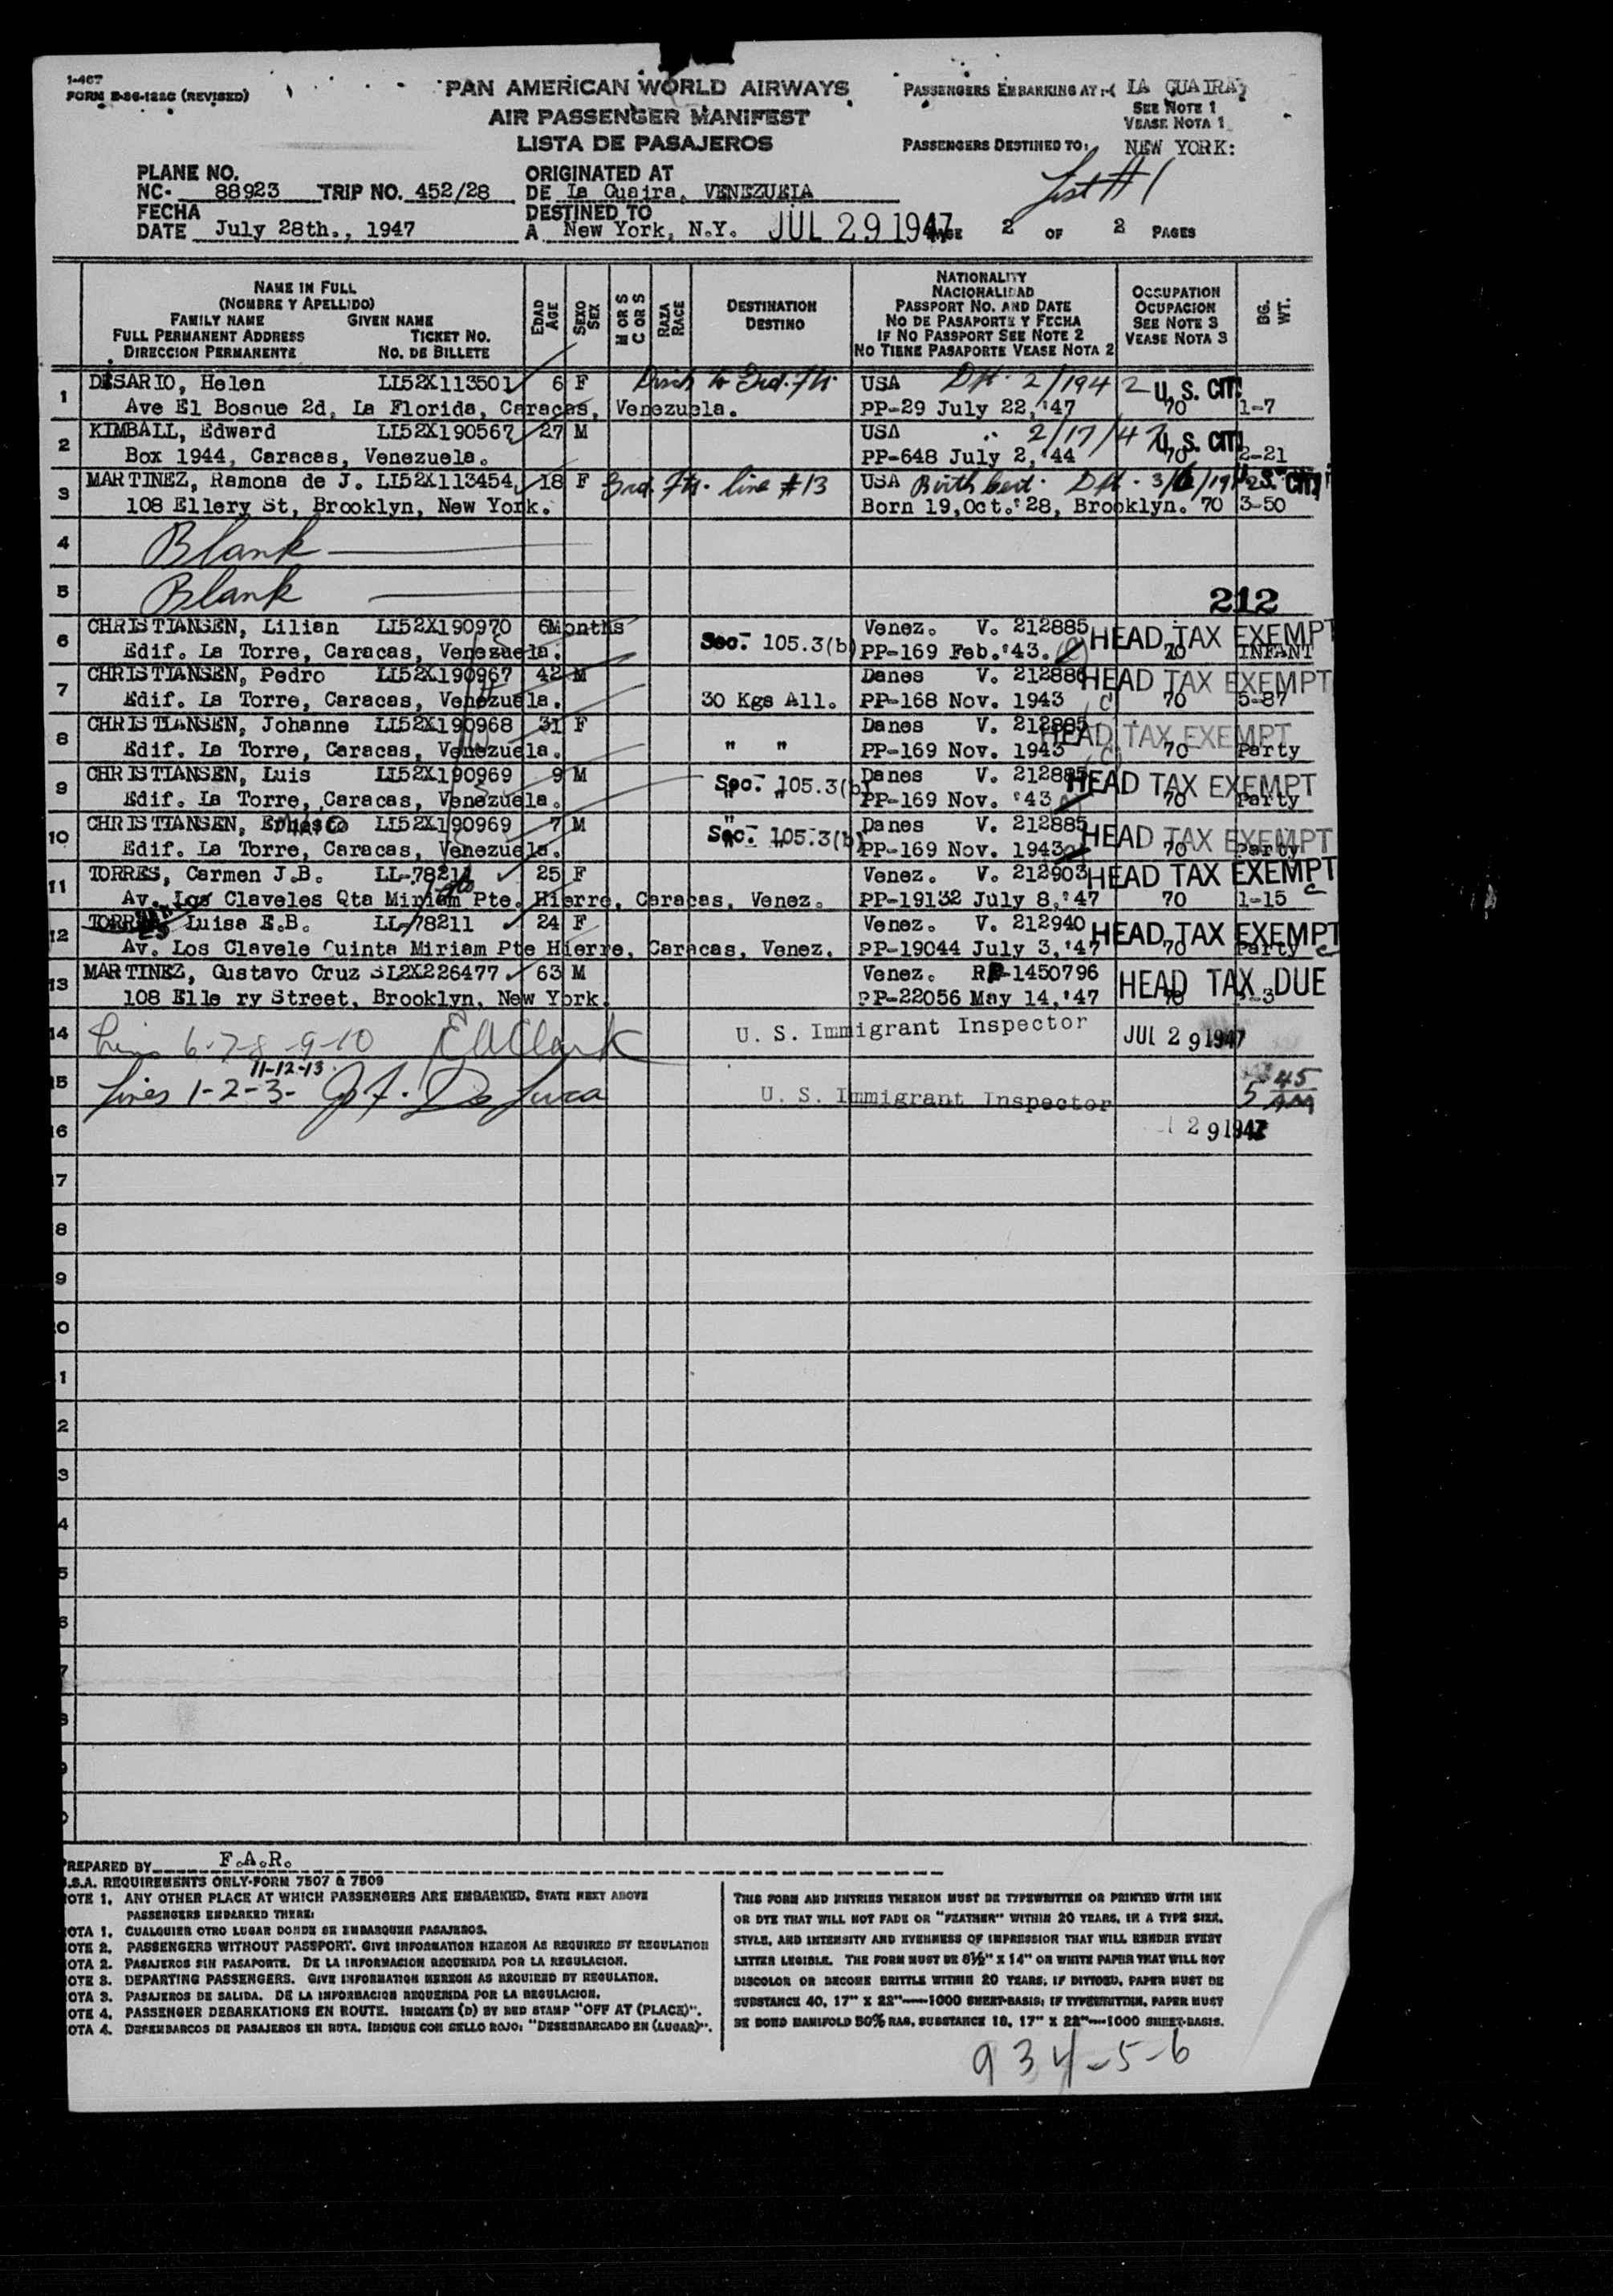 1-467
FORM E-36-122C (REVISED)
PAN AMERICAN WORLD AIRWAYS
AIR PASSENGER MANIFEST
LISTA DE PASAJEROS
PASSENGERS EMBARKING AT:-( LA GUAIRA)
SEE NOTE 1
VEASE NOTA 1
PASSENGERS DESTINED TO: NEW YORK:
List #1
PLANE NO.
NC- 88923 TRIP NO. 452/28
ORIGINATED AT
DE La Guaira, VENEZUELA
FECHA
DATE July 28th., 1947
DESTINED TO
A New York, N.Y. JUL 29 1947
PAGE 2 OF 2 PAGES
NAME IN FULL
(NOMBRE Y APELLIDO)
FAMILY NAME GIVEN NAME
FULL PERMANENT ADDRESS TICKET NO.
DIRECCION PERMANENTE NO. DE BILLETE
EDAD
AGE
SEXO
SEX
M OR S
C OR S
RAZA
RACE
DESTINATION
DESTINO
NATIONALITY
NACIONALIDAD
PASSPORT NO. AND DATE
NO DE PASAPORTE Y FECHA
IF NO PASSPORT SEE NOTE 2
NO TIENE PASAPORTE VEASE NOTA 2
OCCUPATION
OCUPACION
SEE NOTE 3
VEASE NOTA 3
BG.
WT.
1 DESARIO, Helen LL52X113501 6 F USA Dpt. 2/1942 U.S. CIT.
Ave El Bosque 2d, La Florida, Caracas, Venezuela. PP-29 July 22,'47 70 1-7
2 KIMBALL, Edward LL52X190567 27 M USA 2/17/47 U.S. CIT.
Box 1944, Caracas, Venezuela. PP-648 July 2,'44 70 2-21
3 MARTINEZ, Ramona de J. LL52X113454 18 F line #13 USA Birth Cert. U.S. CIT.
108 Ellery St, Brooklyn, New York. Born 19,Oct.'28, Brooklyn. 70 3-50
4 Blank
5 Blank 212
6 CHRISTIANSEN, Lilian LL52X190970 6Months Sec. 105.3(b) Venez. V. 212885 HEAD TAX EXEMPT
Edif. La Torre, Caracas, Venezuela. PP-169 Feb.'43. 70 INFANT
7 CHRISTIANSEN, Pedro LL52X190967 42 M Danes V. 212886 HEAD TAX EXEMPT
Edif. La Torre, Caracas, Venezuela. 30 Kgs All. PP-168 Nov. 1943 70 5-87
8 CHRISTIANSEN, Johanne LL52X190968 31 F Danes V. 212885 HEAD TAX EXEMPT
Edif. La Torre, Caracas, Venezuela. " " PP-169 Nov. 1943 70 Party
9 CHRISTIANSEN, Luis LL52X190969 9 M Sec. 105.3(b) Danes V. 212885 HEAD TAX EXEMPT
Edif. La Torre, Caracas, Venezuela. " " PP-169 Nov. '43 70 Party
10 CHRISTIANSEN, Ernesto LL52X190969 7 M Sec. 105.3(b) Danes V. 212885 HEAD TAX EXEMPT
Edif. La Torre, Caracas, Venezuela. PP-169 Nov. 1943 70 Party
11 TORRES, Carmen J.B. LL-78211 25 F Venez. V. 212903 HEAD TAX EXEMPT
Av. Los Claveles Qta Miriam Pte. Hierro, Caracas, Venez. PP-19132 July 8,'47 70 1-15
12 TORRES Luisa E.B. LL-78211 24 F Venez. V. 212940 HEAD TAX EXEMPT
Av. Los Clavele Quinta Miriam Pte Hierre, Caracas, Venez. PP-19044 July 3,'47 70 Party
13 MARTINEZ, Gustavo Cruz SL2X226477 63 M Venez. RP-1450796 HEAD TAX DUE
108 Elle ry Street, Brooklyn, New York. PP-22056 May 14,'47
14 Lines 6-7-8-9-10 E A Clark U. S. Immigrant Inspector JUL 29 1947
11-12-13
15 Lines 1-2-3- De Luca U. S. Immigrant Inspector 5 45 AM
16 29 1947
17
8
9
0
1
2
3
4
5
6
7
8
9
PREPARED BY F.A.R.
.S.A. REQUIREMENTS ONLY-FORM 7507 & 7509
OTE 1. ANY OTHER PLACE AT WHICH PASSENGERS ARE EMBARKED, STATE NEXT ABOVE
PASSENGERS EMBARKED THERE:
OTA 1. CUALQUIER OTRO LUGAR DONDE SE EMBARQUEN PASAJEROS.
OTE 2. PASSENGERS WITHOUT PASSPORT. GIVE INFORMATION HEREON AS REQUIRED BY REGULATION
OTA 2. PASAJEROS SIN PASAPORTE. DE LA INFORMACION REQUERIDA POR LA REGULACION.
OTE 3. DEPARTING PASSENGERS. GIVE INFORMATION HEREON AS REQUIRED BY REGULATION.
OTA 3. PASAJEROS DE SALIDA. DE LA INFORMACION REQUERIDA POR LA REGULACION.
OTE 4. PASSENGER DEBARKATIONS EN ROUTE. INDICATE (D) BY RED STAMP "OFF AT (PLACE)".
OTA 4. DESEMBARCOS DE PASAJEROS EN RUTA. INDIQUE CON SELLO ROJO: "DESEMBARCADO EN (LUGAR)".
THIS FORM AND ENTRIES THEREON MUST BE TYPEWRITTEN OR PRINTED WITH INK
OR DYE THAT WILL NOT FADE OR "FEATHER" WITHIN 20 YEARS, IN A TYPE SIZE,
STYLE, AND INTENSITY AND EVENNESS OF IMPRESSION THAT WILL RENDER EVERY
LETTER LEGIBLE. THE FORM MUST BE 8½" X 14" ON WHITE PAPER THAT WILL NOT
DISCOLOR OR BECOME BRITTLE WITHIN 20 YEARS; IF DITTOED, PAPER MUST BE
SUBSTANCE 40, 17" X 22"----1000 SHEET-BASIS; IF TYPEWRITTEN, PAPER MUST
BE BOND MANIFOLD 50% RAG, SUBSTANCE 18, 17" X 22"----1000 SHEET-BASIS.
934-5-6